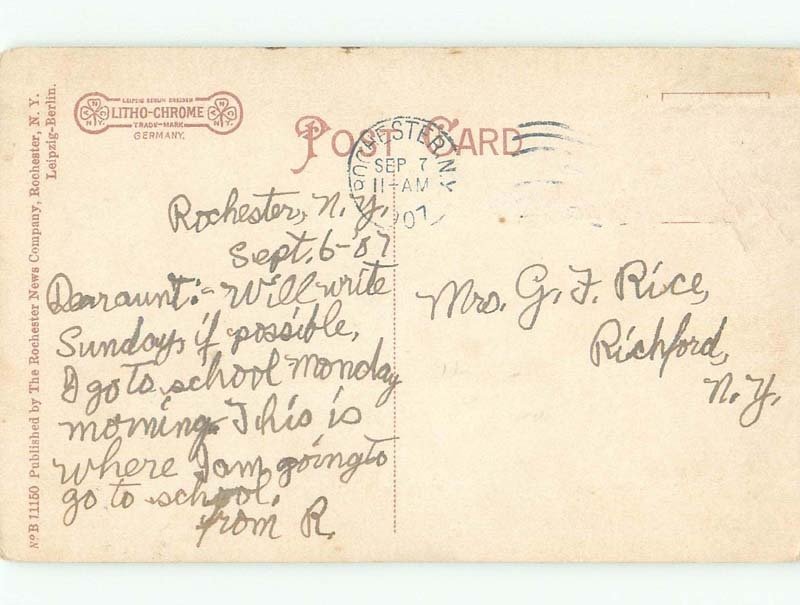 No B 11150 Published by The Rochester News Company, Rochester, N. Y.
Leipzig-Berlin.
LEIPZIG BERLIN DRESDEN
LITHO-CHROME
TRADE-MARK
GERMANY.
POST CARD
ROCHESTER, N.Y.
SEP 7
11-AM
1907
Rochester, N.Y.
Sept. 6-'07
Dear aunt:- Will write
Sunday, if possible,
I go to school Monday
morning. This is
where I am going to
go to school.
from R.
Mrs. G. F. Rice,
Richford,
N.Y.